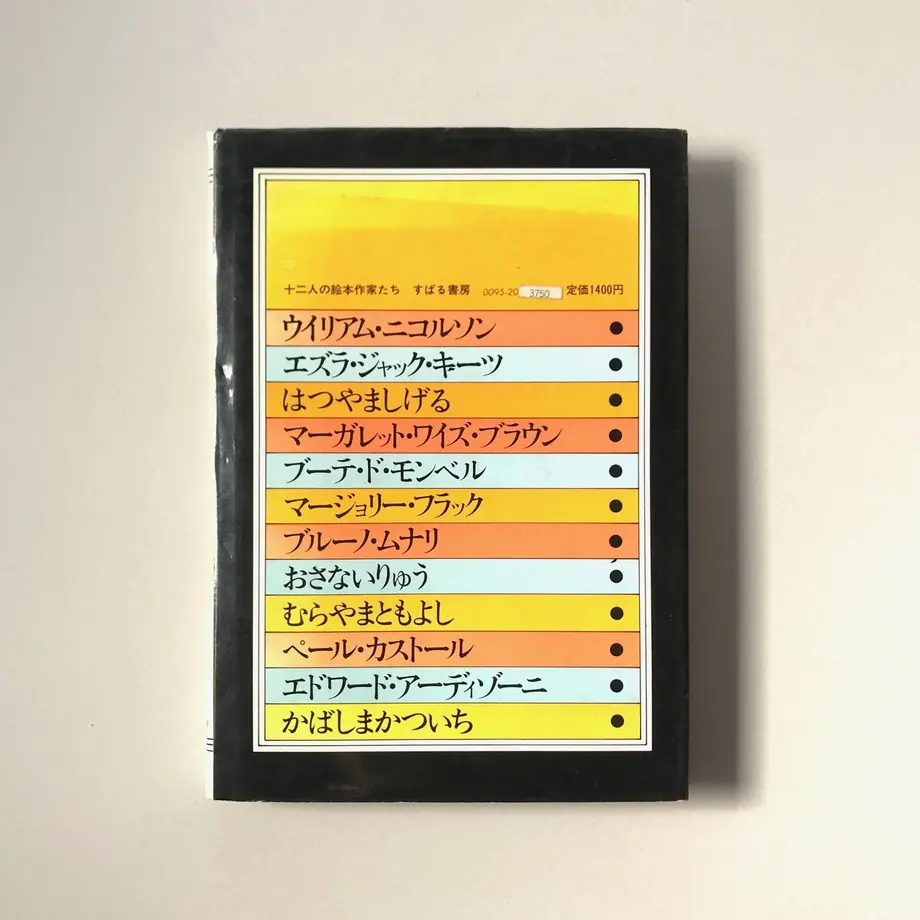 十二人の絵本作家たち すばる書房 0095-20 3750 定価1400円
ウイリアム・ニコルソン
エズラ・ジャック・キーツ
はつやましげる
マーガレット・ワイズ・ブラウン
ブーテ・ド・モンベル
マージョリー・フラック
ブルーノ・ムナリ
おさないりゅう
むらやまともよし
ペール・カストール
エドワード・アーディゾーニ
かばしまかついち